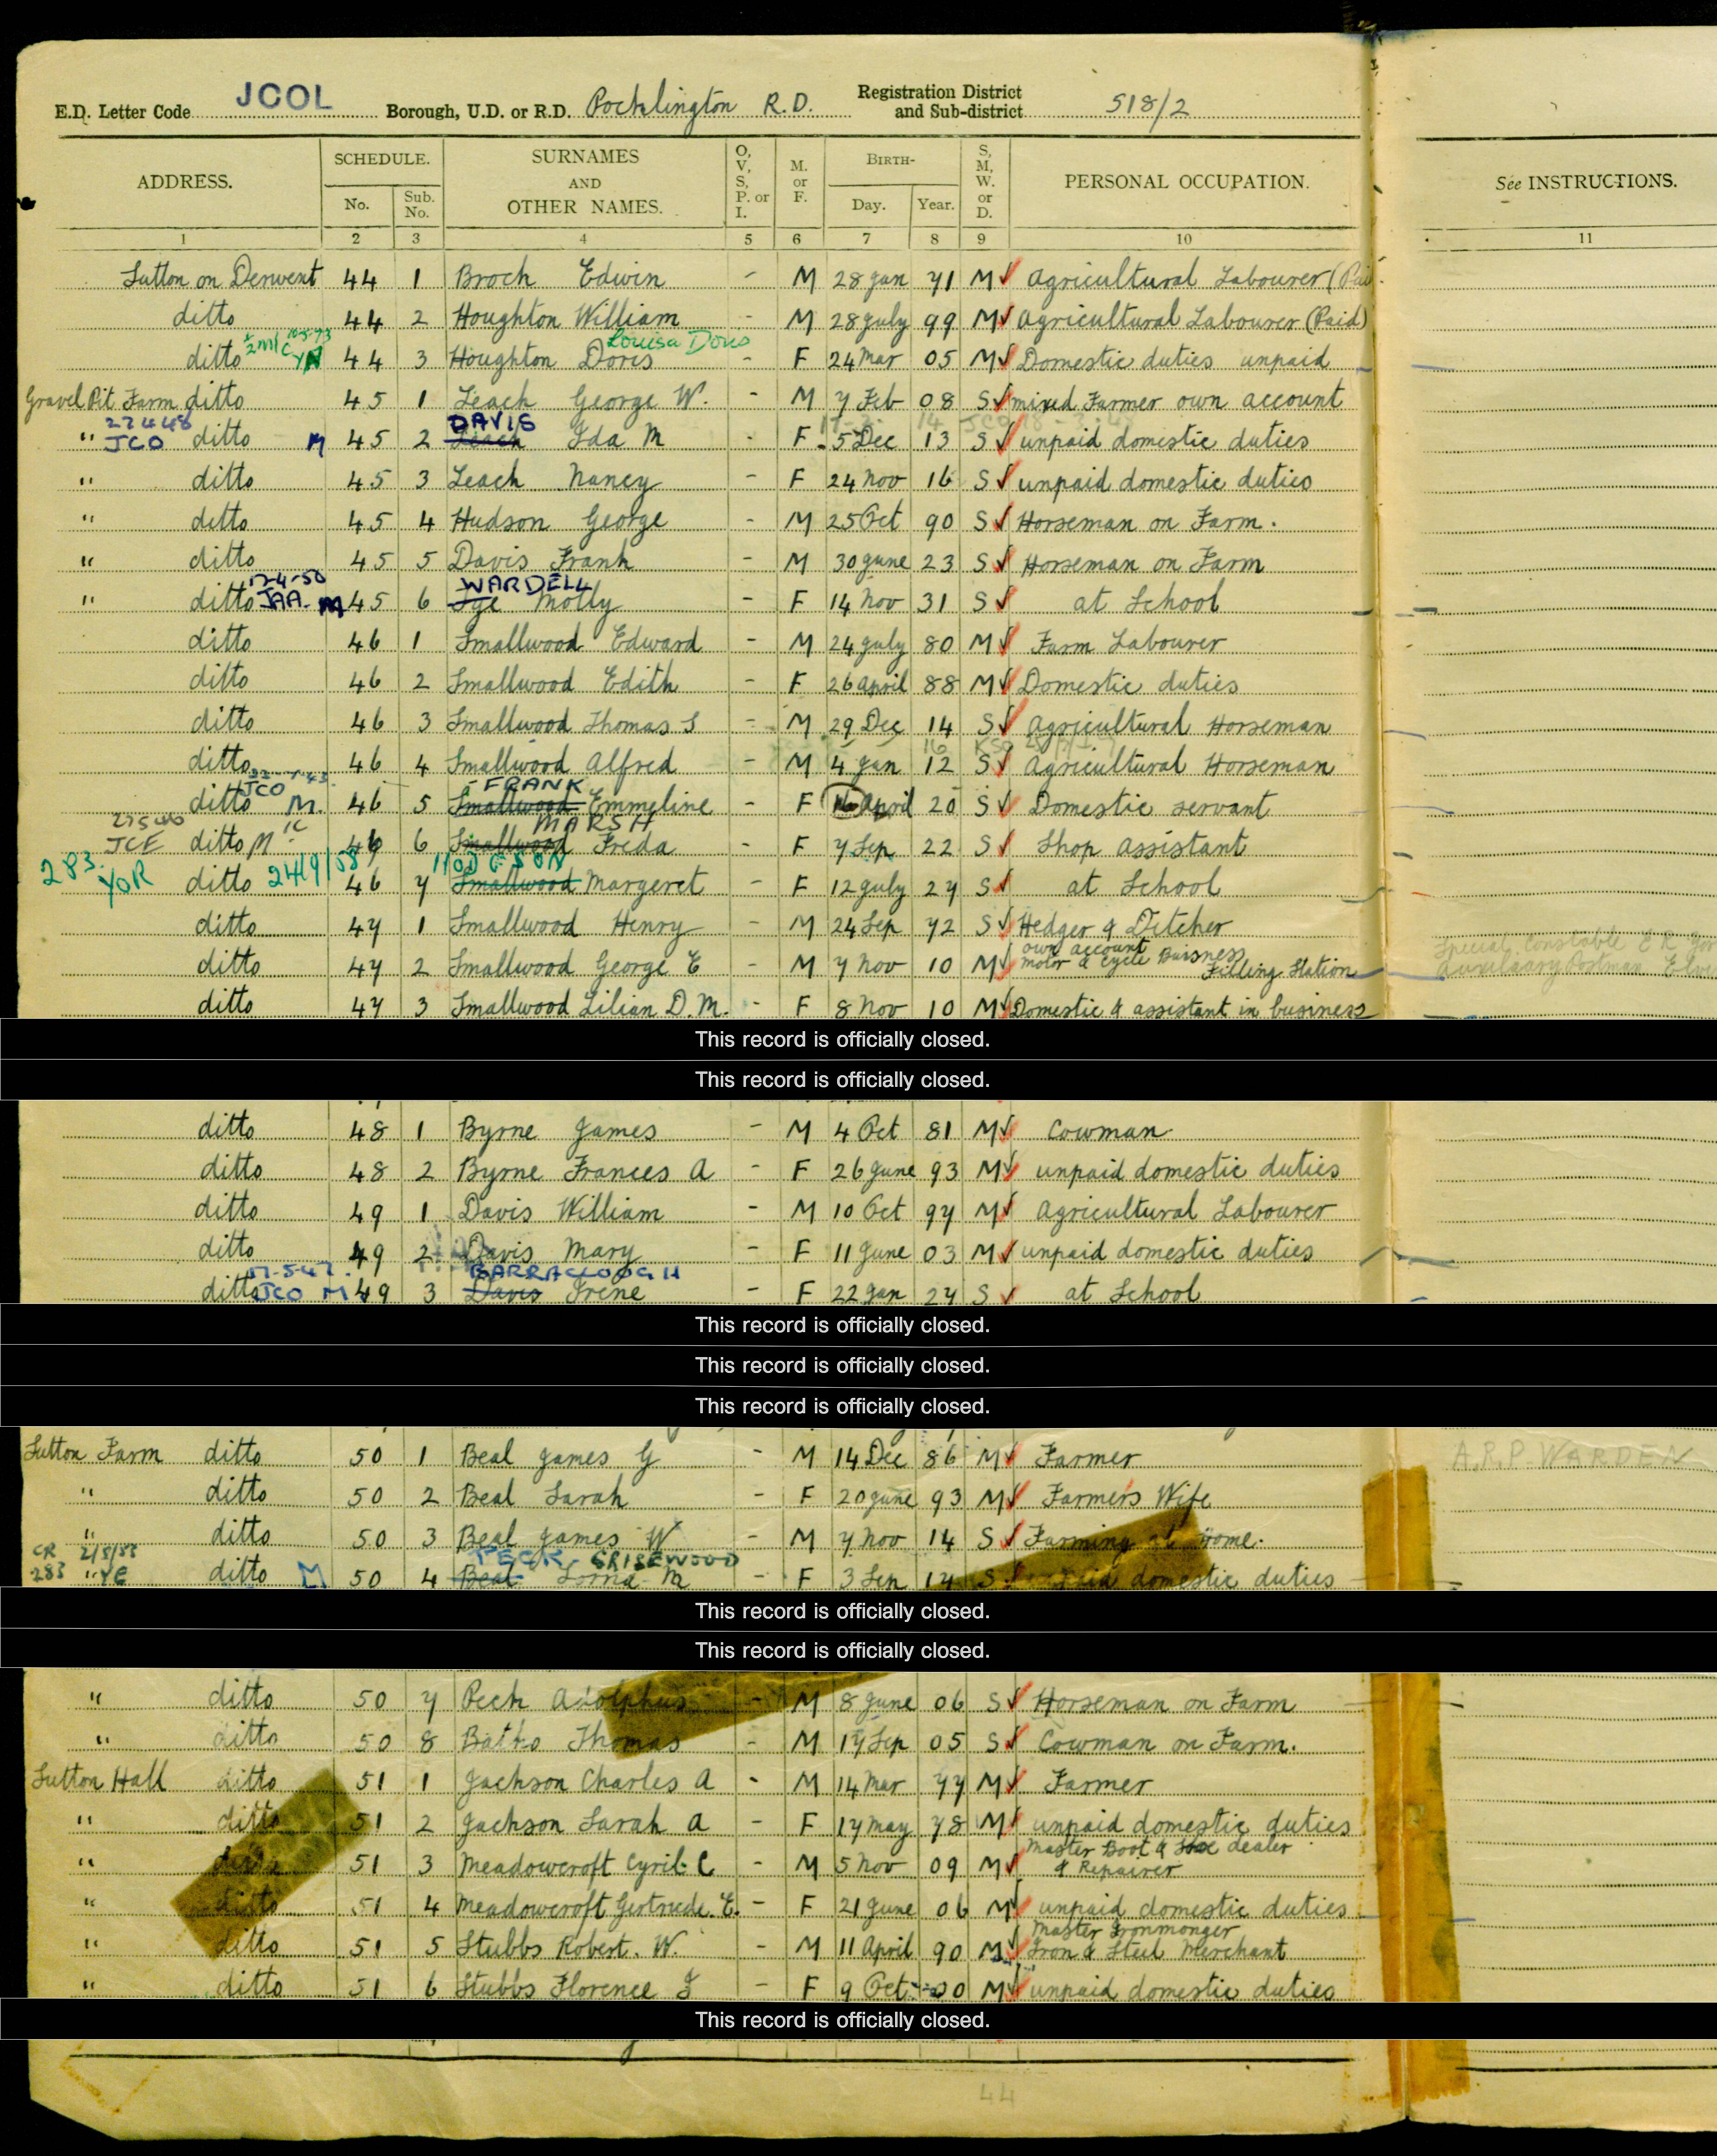 E.D. Letter Code JCOL Borough, U.D. or R.D. Pocklington R.D. Registration District and Sub-district 518/2
ADDRESS. SCHEDULE. No. Sub. No. SURNAMES AND OTHER NAMES. O, V, S, P. or I. M. or F. BIRTH- Day. Year. S, M, W. or D. PERSONAL OCCUPATION. See INSTRUCTIONS.
1 2 3 4 5 6 7 8 9 10 11
Sutton on Derwent 44 1 Broch Edwin - M 28 Jan 71 M Agricultural Labourer
ditto 44 2 Houghton William - M 28 July 99 M Agricultural Labourer (Paid)
Louisa Doris
ditto 44 3 Houghton Doris - F 24 Mar 05 M Domestic duties unpaid
Gravel Pit Farm ditto 45 1 Leach George W. - M 7 Feb 08 S mixed Farmer own account
27 4 48 DAVIS
" JCO ditto M 45 2 Leach Ida M - F 5 Dec 13 S unpaid domestic duties
" ditto 45 3 Leach Nancy - F 24 Nov 16 S unpaid domestic duties
" ditto 45 4 Hudson George - M 25 Oct 90 S Horseman on Farm.
" ditto 45 5 Davis Frank - M 30 June 23 S Horseman on Farm
WARDELL
" ditto JAA. M 45 6 Molly - F 14 Nov 31 S at School
ditto 46 1 Smallwood Edward - M 24 July 80 M Farm Labourer
ditto 46 2 Smallwood Edith - F 26 April 88 M Domestic duties
ditto 46 3 Smallwood Thomas S - M 29 Dec 14 S Agricultural Horseman
ditto 46 4 Smallwood Alfred - M 4 Jan 12 S Agricultural Horseman
JCO FRANK
ditto M. 46 5 Smallwood Emmeline - F 16 April 20 S Domestic servant
MARSH
JCE ditto M 46 6 Smallwood Freda - F 7 Sep 22 S Shop Assistant
283 YOR ditto 46 7 Smallwood Margeret - F 12 July 27 S at School
ditto 47 1 Smallwood Henry - M 24 Sep 72 S Hedger & Ditcher
own account
ditto 47 2 Smallwood George E - M 7 Nov 10 M motor & cycle Buisness Filling Station Special Constable E R
Auxiliary Postman
ditto 47 3 Smallwood Lilian D. M. - F 8 Nov 10 M Domestic & assistant in business
This record is officially closed.
This record is officially closed.
ditto 48 1 Byrne James - M 4 Oct 81 M Cowman
ditto 48 2 Byrne Frances A - F 26 June 93 M unpaid domestic duties
ditto 49 1 Davis William - M 10 Oct 97 M Agricultural Labourer
ditto 49 2 Davis Mary - F 11 June 03 M unpaid domestic duties
BARRACLOUGH
ditto JCO M 49 3 Davis Irene - F 22 Jan 27 S at School
This record is officially closed.
This record is officially closed.
This record is officially closed.
Sutton Farm ditto 50 1 Beal James G - M 14 Dec 86 M Farmer A.R.P. WARDEN
" ditto 50 2 Beal Sarah - F 20 June 93 M Farmers Wife
" ditto 50 3 Beal James W - M 7 Nov 14 S Farming at home.
CR PECK GRISEWOOD
283 " YE ditto M 50 4 Beal Lorna M - F 3 Sep 17 S unpaid domestic duties
This record is officially closed.
This record is officially closed.
" ditto 50 7 Peck Adolphus - M 8 June 06 S Horseman on Farm
" ditto 50 8 Thomas - M 17 Sep 05 S Cowman on Farm.
Sutton Hall ditto 51 1 Jackson Charles A - M 14 Mar 77 M Farmer
" ditto 51 2 Jackson Sarah A - F 17 May 78 M unpaid domestic duties
Master Boot & Shoe dealer
" ditto 51 3 Meadowcroft Cyril C - M 5 Nov 09 M & Repairer
" ditto 51 4 Meadowcroft Gertrude. E. - F 21 June 06 M unpaid domestic duties
Master Ironmonger
" ditto 51 5 Stubbs Robert. W. - M 11 April 90 M Iron & Steel Merchant
" ditto 51 6 Stubbs Florence J - F 9 Oct M unpaid domestic duties
This record is officially closed.
44